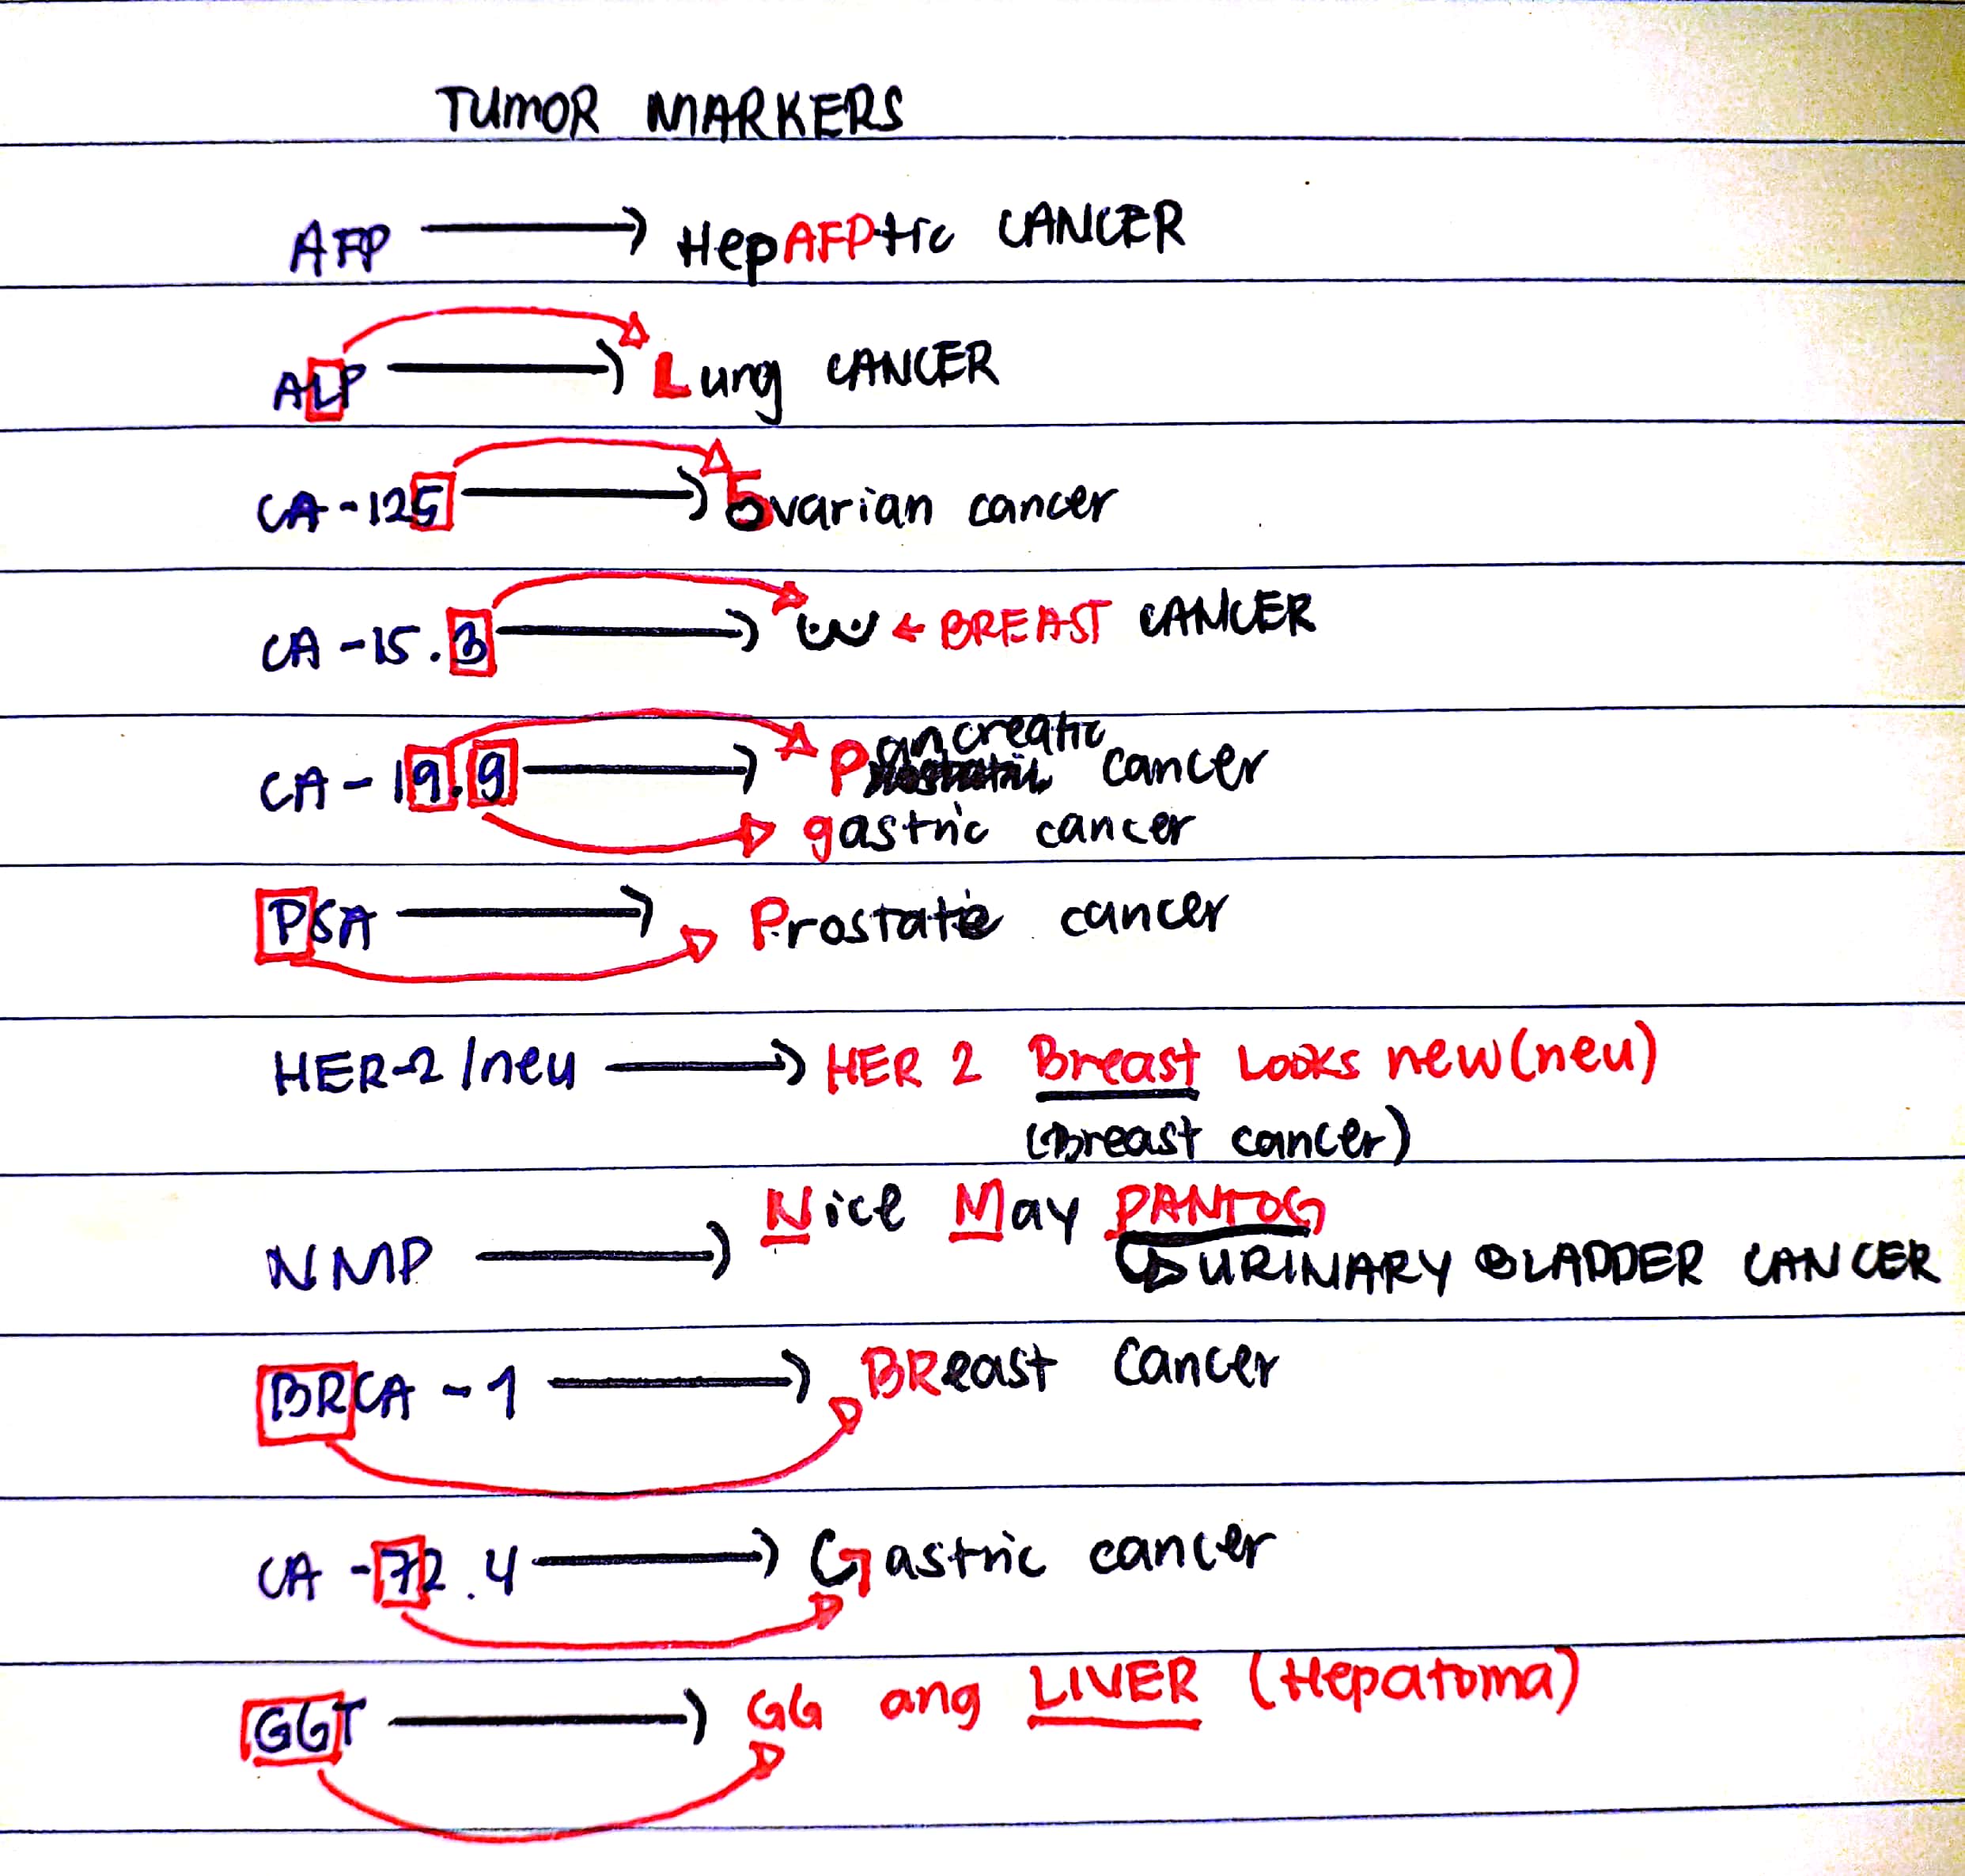 TUMOR MARKERS
AFP → HepAFPtic CANCER
ALP → Lung CANCER
CA-125 → 5varian cancer
CA-15.3 → ← BREAST CANCER
CA-19.9 → Pancreatic cancer
gastric cancer
PSA → Prostatic cancer
HER-2/neu → HER 2 Breast Looks new(neu)
(Breast cancer)
NMP → Nice May PANTOG
URINARY BLADDER CANCER
BRCA-1 → BReast Cancer
CA-72.4 → Gastric cancer
GGT → GG ang LIVER (Hepatoma)